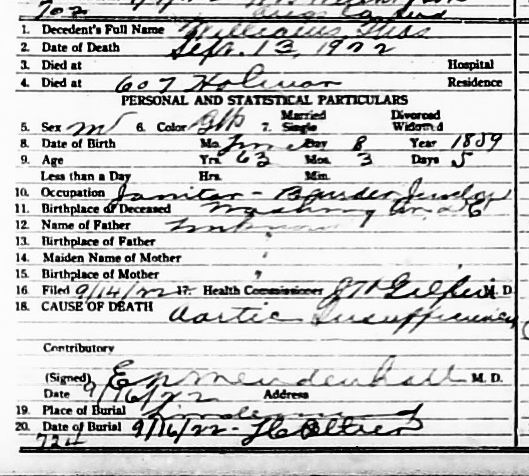 702
1. Decedent's Full Name Williams Thos
2. Date of Death Sept. 13, 1922
3. Died at Hospital
4. Died at 607 Holman Residence
PERSONAL AND STATISTICAL PARTICULARS
5. Sex m 6. Color Blk 7. Married Single Divorced Widowed
8. Date of Birth Mo. June Day 8 Year 1859
9. Age Yrs. 63 Mos. 3 Days 5
Less than a Day Hrs. Min.
10. Occupation Janitor - Jewelry
11. Birthplace of Deceased
12. Name of Father Unknown
13. Birthplace of Father "
14. Maiden Name of Mother "
15. Birthplace of Mother "
16. Filed 9/14/22 17. Health Commissioner M. D.
18. CAUSE OF DEATH Aortic Insufficiency
Contributory
(Signed) E P Mendenhall M. D.
Date 9/16/22 Address
19. Place of Burial
20. Date of Burial 9/16/22-
724